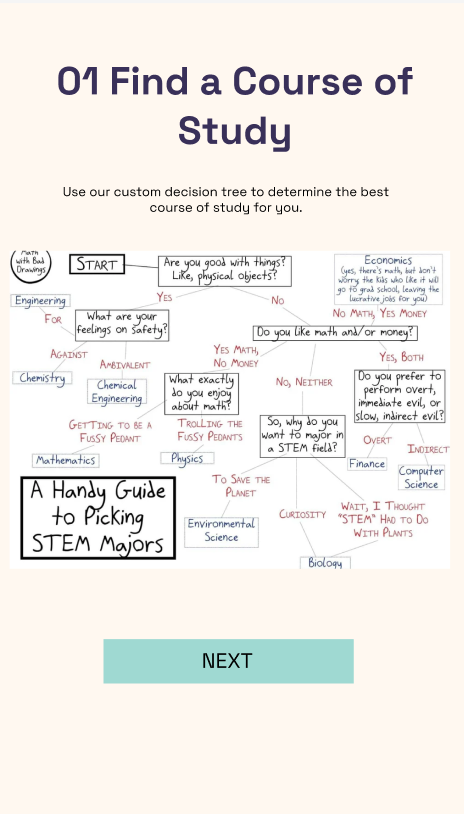 01 Find a Course of
Study
Use our custom decision tree to determine the best
course of study for you.
Math
with Bad
Drawings
START
Are you good with things?
Like, physical objects?
Economics
(yes, there's math, but don't
worry, the kids who like it will
go to grad school, leaving the
lucrative jobs for you)
YES
NO
NO MATH, YES MONEY
Engineering
FOR
What are your
feelings on safety?
Do you like math and/or money?
AGAINST
AMBIVALENT
YES MATH,
NO MONEY
YES, BOTH
Chemistry
Chemical
Engineering
What exactly
do you enjoy
about math?
NO, NEITHER
Do you prefer to
perform overt,
immediate evil, or
slow, indirect evil?
GETTING TO BE A
FUSSY PEDANT
TROLLING THE
FUSSY PEDANTS
So, why do you
want to major in
a STEM field?
OVERT
INDIRECT
Mathematics
Physics
Finance
Computer
Science
A Handy Guide
to Picking
STEM Majors
TO SAVE THE
PLANET
CURIOSITY
WAIT, I THOUGHT
"STEM" HAD TO DO
WITH PLANTS
Environmental
Science
Biology
NEXT